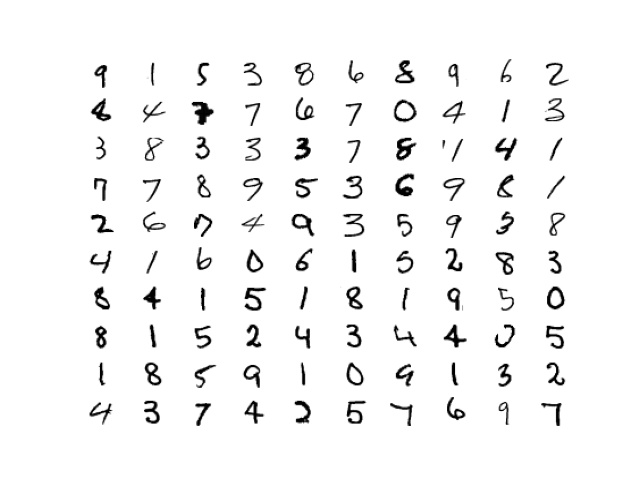 9 1 5 3 8 6 8 9 6 2
8 4 7 7 6 7 0 4 1 3
3 8 3 3 3 7 8 1 4 1
7 7 8 9 5 3 6 9 8 1
2 6 7 4 9 3 5 9 3 8
4 1 6 0 6 1 5 2 8 3
8 4 1 5 1 8 1 9 5 0
8 1 5 2 4 3 4 4 0 5
1 8 5 9 1 0 9 1 3 2
4 3 7 4 2 5 7 6 9 7